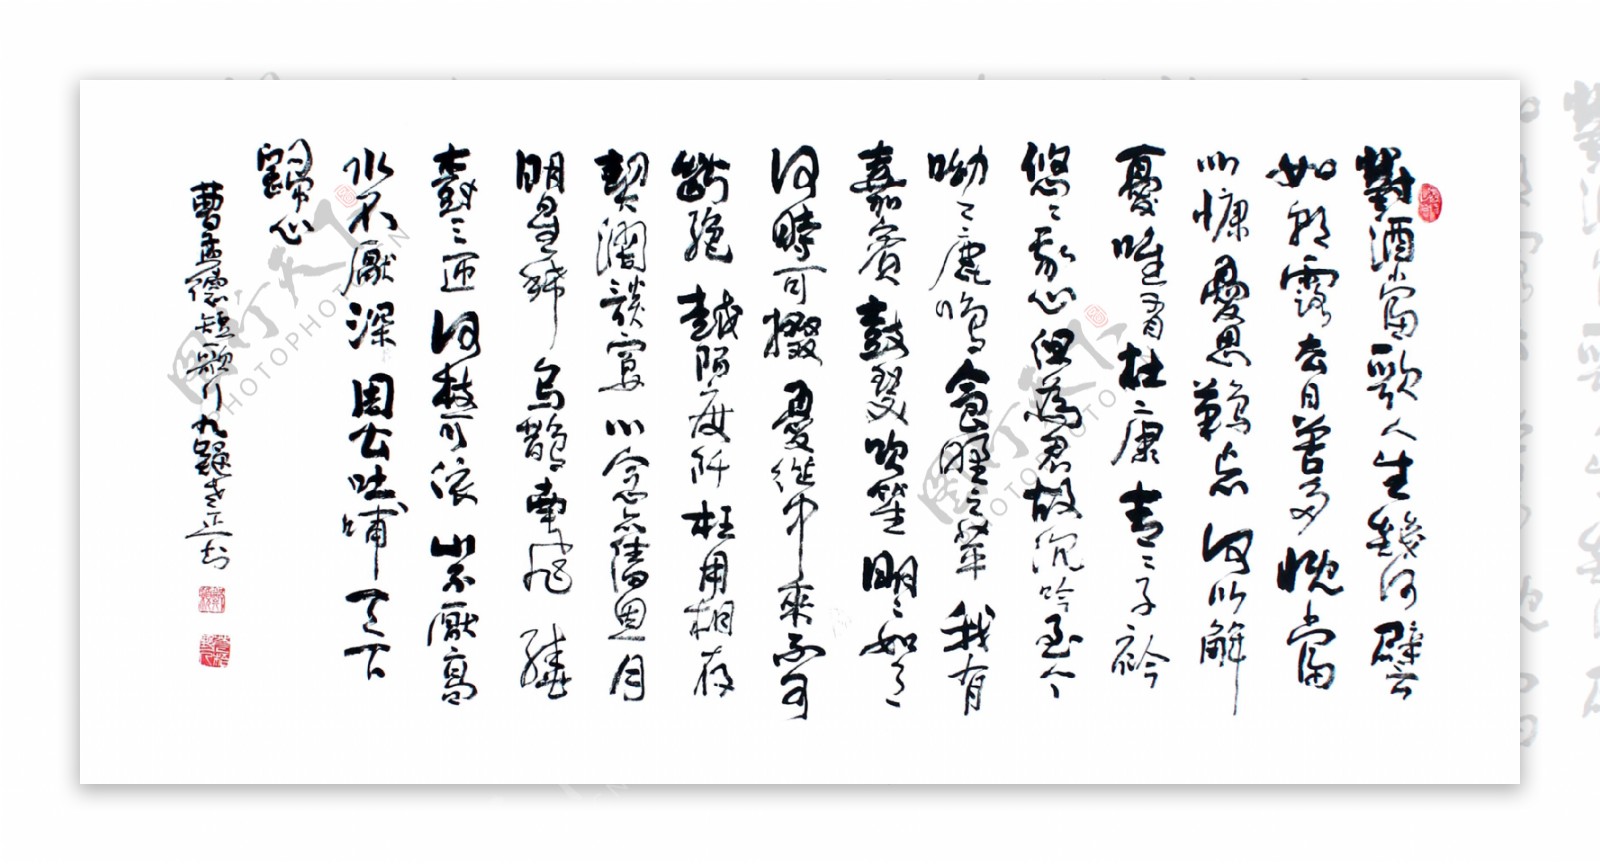 對酒當歌人生幾何譬
如朝露去日苦多慨當
以慷憂思難忘何以解
憂唯有杜康青々子衿
悠々我心但為君故沉吟至今
呦々鹿鳴食野之苹我有
嘉賓鼓瑟吹笙明々如月
何時可掇憂從中來不可
斷絕越陌度阡枉用相存
契闊談宴心念舊恩月
明星稀烏鵲南飛繞
樹三匝何枝可依山不厭高
水不厭深周公吐哺天下
歸心
曹孟德短歌行